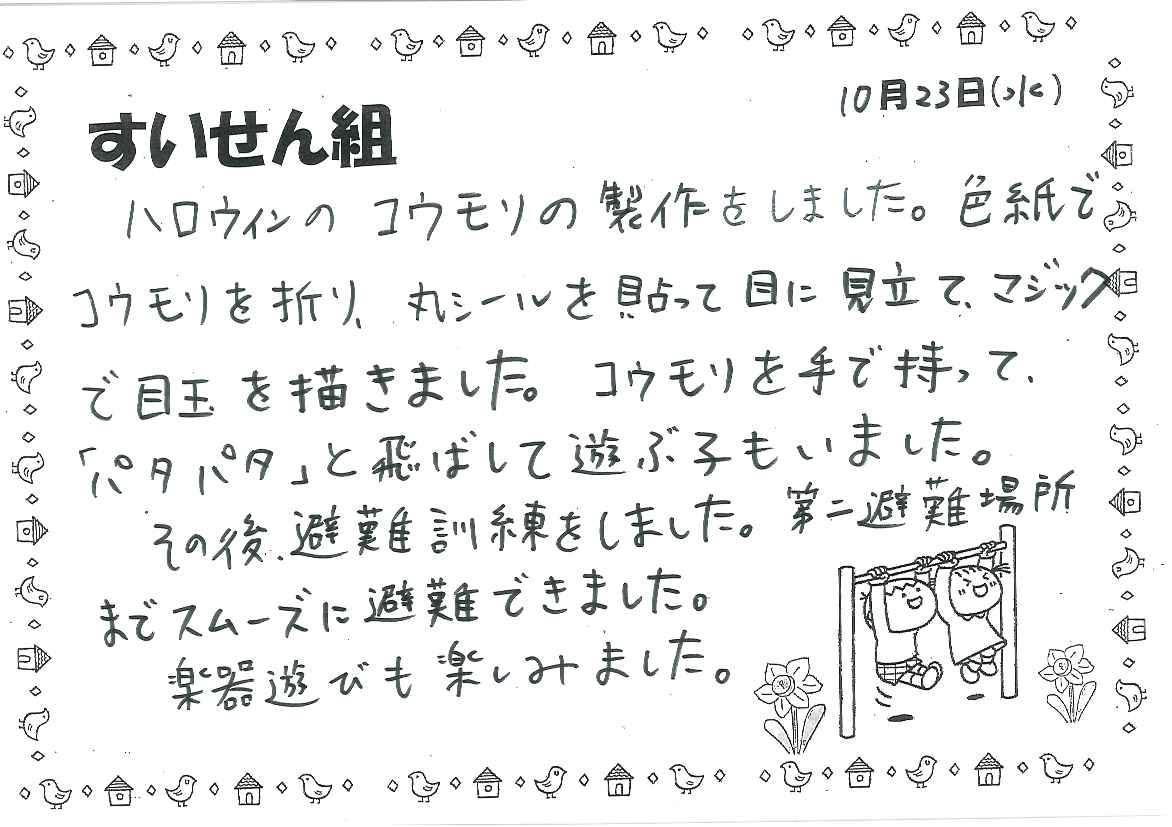 10月23日(水)
すいせん組
ハロウィンの コウモリの 製作をしました。色紙で
コウモリを折り、丸シールを貼って目に見立て、マジック
で目玉を描きました。コウモリを手で持って、
「パタパタ」と飛ばして遊ぶ子もいました。
その後、避難訓練をしました。第二避難場所
までスムーズに避難できました。
楽器遊びも楽しみました。